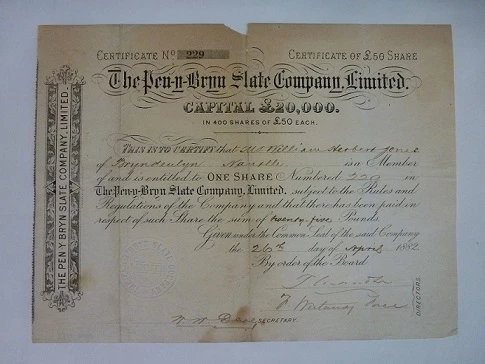 CERTIFICATE No 229
CERTIFICATE OF £50 SHARE
The Pen-y-Bryn Slate Company, Limited.
CAPITAL £20,000.
IN 400 SHARES OF £50 EACH.
THIS IS TO CERTIFY that Mr William Herbert Jones
of Nantlle is a Member
of and is entitled to ONE SHARE Numbered 229 in
The Pen-y-Bryn Slate Company, Limited, subject to the Rules and
Regulations of the Company and that there has been paid in
respect of such Share the sum of twenty five Pounds.
Given under the Common Seal of the said Company
the 26th day of April 1882
By order of the Board
DIRECTORS.
SECRETARY.
THE PEN-Y BRYN SLATE COMPANY, LIMITED.